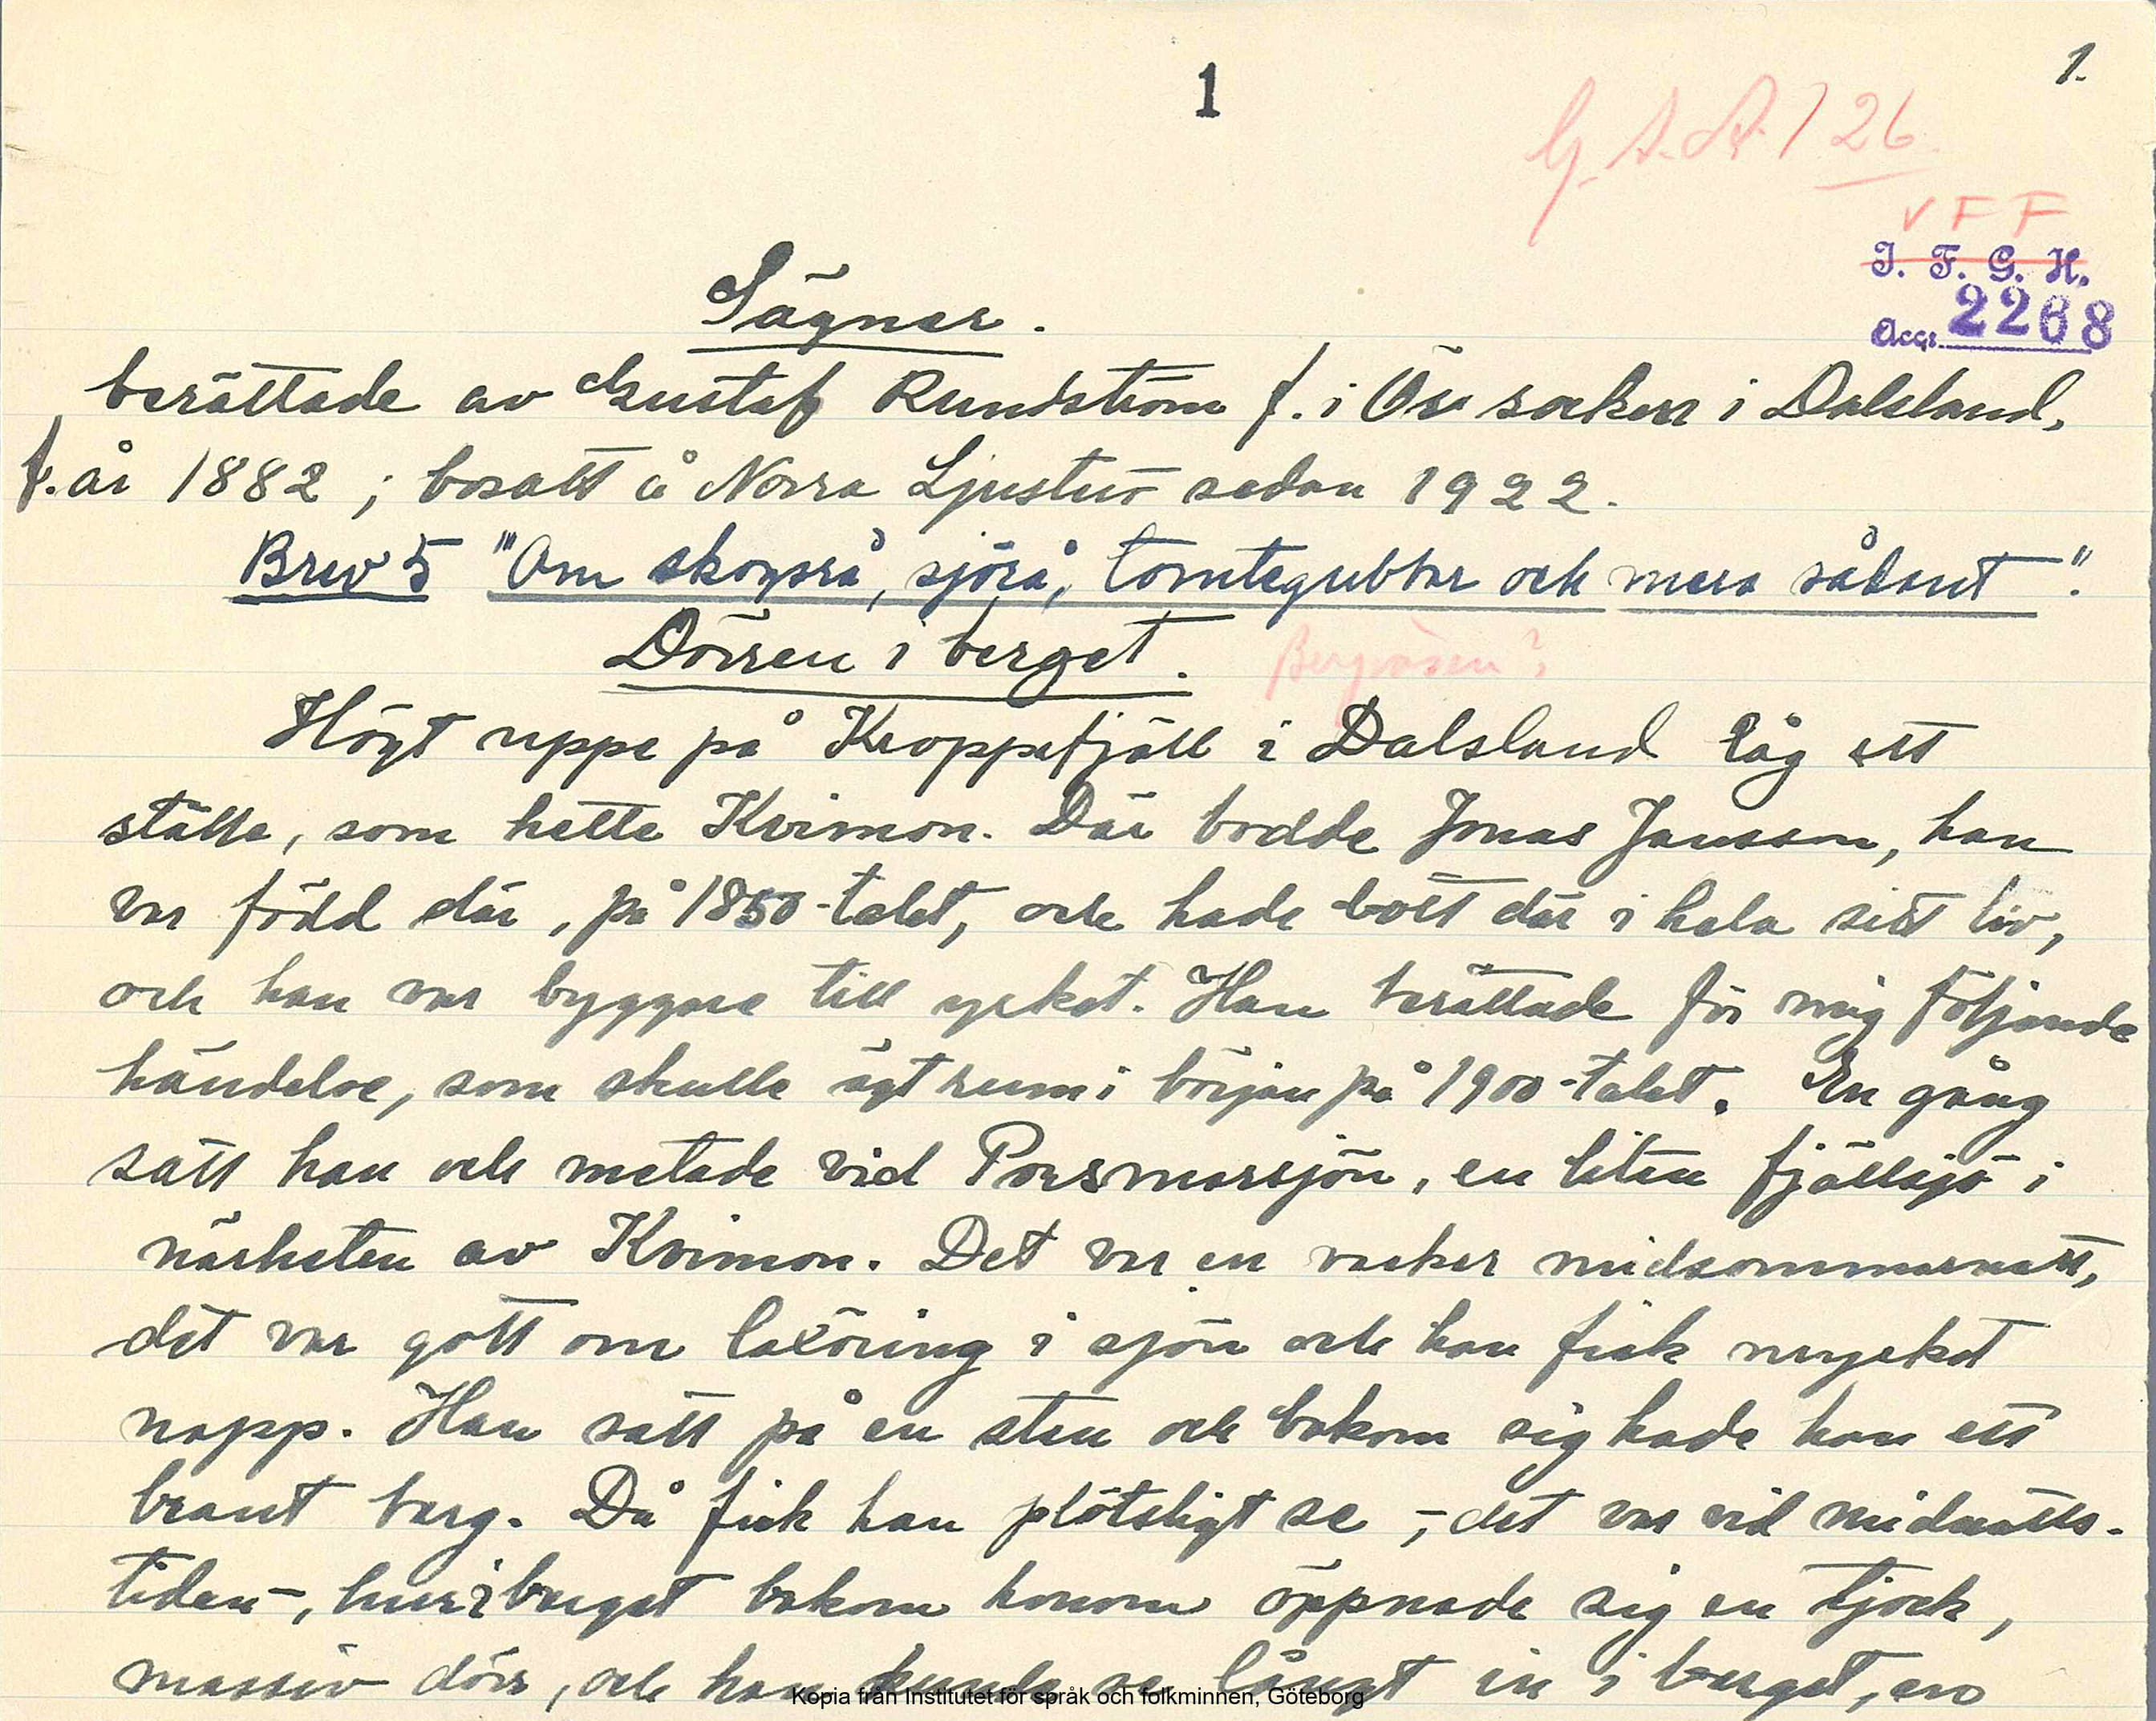 1
1.
G.A.A. 126
VFF
I. F. G. H.
Acc: 2268
Sägner.
berättade av Gustaf Rundström f. i Örs socken i Dalsland,
f. år 1882 ; bosatt å Norra Ljustur sedan 1922.
Brev 5 "Om skogsrå, sjörå, tomtegubbar och mera sådant".
Dörren i berget. Bergväsen?
Högt uppe på Kroppefjäll i Dalsland låg ett
ställe, som hette Kvimon. Där bodde Jonas Jansson, han
var född där, på 1850-talet, och hade bott där i hela sitt liv,
och han var byggare till yrket. Han berättade för mig följande
händelse, som skulle ägt rum i början på 1900-talet. En gång
satt han och metade vid Porsmarsjön, en liten fjällsjö i
närheten av Kvimon. Det var en vacker midsommarnatt,
det var gott om laxöring i sjön och han fick mycket
napp. Han satt på en sten och bakom sig hade han ett
brant berg. Då fick han plötsligt se -, det var vid midnatts-
tiden -, hur i berget bakom honom öppnade sig en tjock,
massiv dörr, och han kunde se långt in i berget, en
Kopia från Institutet för språk och folkminnen, Göteborg